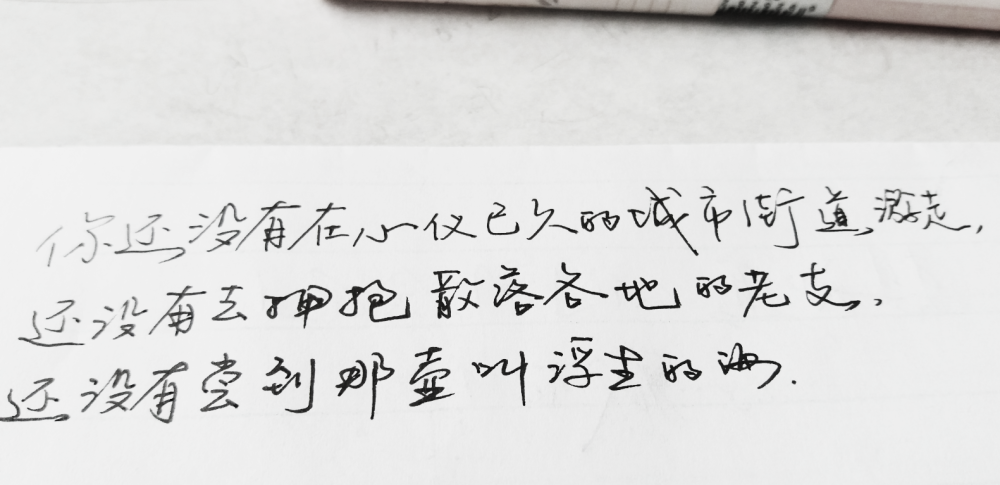 你还没有在心仪已久的城市街道游走,
还没有去拥抱散落各地的老友,
还没有尝到那壶叫浮生的酒.